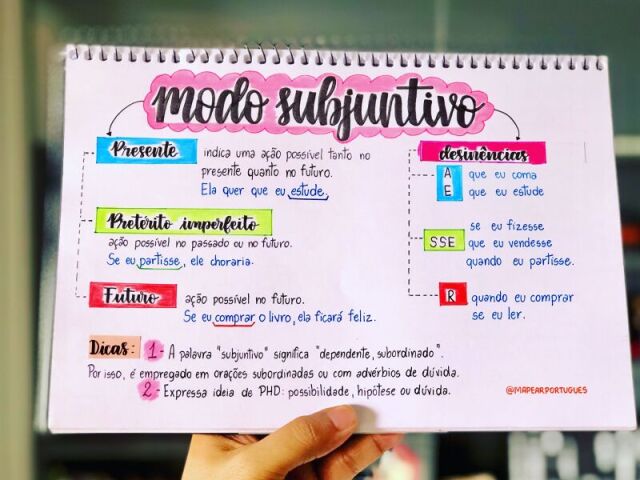 modo subjuntivo
Presente
indica uma ação possível tanto no
presente quanto no futuro.
Ela quer que eu estude.
Pretérito imperfeito
ação possível no passado ou no futuro.
Se eu partisse, ele choraria.
Futuro
ação possível no futuro.
Se eu comprar o livro, ela ficará feliz.
desinências
A que eu coma
E que eu estude
se eu fizesse
SSE que eu vendesse
quando eu partisse.
R quando eu comprar
se eu ler.
Dicas: 1- A palavra "subjuntivo" significa "dependente, subordinado".
Por isso, é empregado em orações subordinadas ou com advérbios de dúvida.
2- Expressa ideia de PHD: possibilidade, hipótese ou dúvida.
@MAPEARPORTUGUES